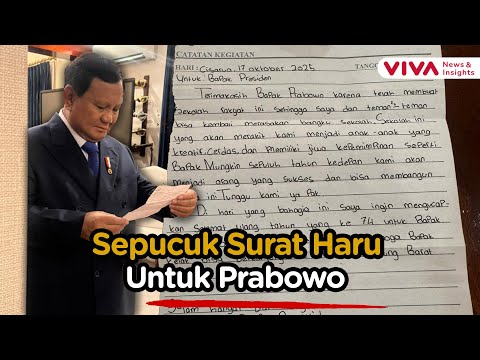 VIVA News & Insights
CATATAN KEGIATAN
HARI : Cisarua, 17 oktober 2025
Untuk: Bapak Presiden
Terimakasih Bapak Prabowo karena telah membuat
sekolah rakyat ini sehingga saya dan teman² teman
bisa kembali merasakan bangku sekolah. Sekolah ini
yang akan merakit kami menjadi anak-anak yang
kreatif, cerdas, dan memiliki jiwa kepemimpinan seperti
Bapak. Mungkin sepuluh tahun kedepan kami akan
menjadi orang yang sukses dan bisa membangun
ini Tunggu kami ya Pak.
Di hari yang bahagia ini saya ingin mengucap-
kan Selamat ulang tahun yang ke 74 untuk Bapak
Sepucuk Surat Haru
Untuk Prabowo